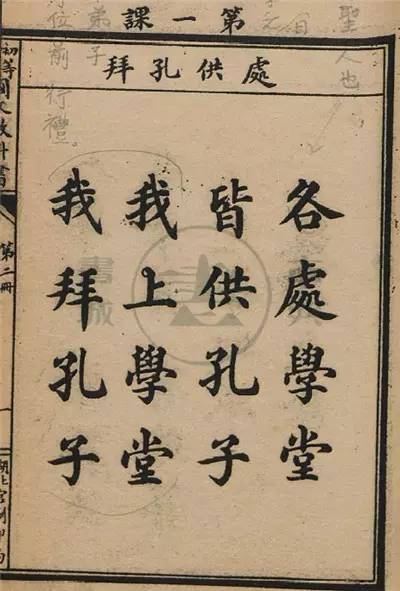 第一課
處供孔拜
各處學堂
皆供孔子
我上學堂
我拜孔子
初等國文教科書
第二冊
一
聖人也
弟子
位前行禮。
書成